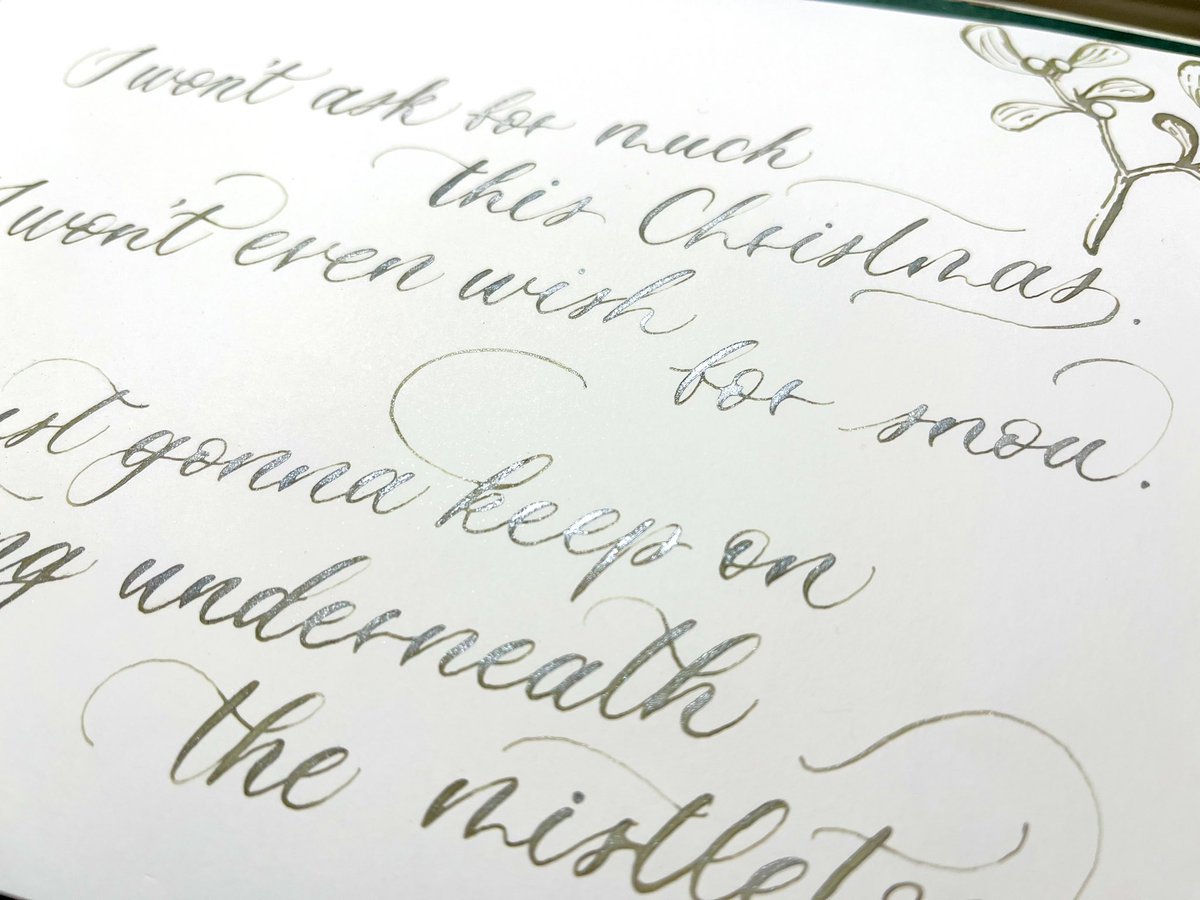 I won't ask for much
this Christmas.
I won't even wish
for snow.
ust gonna keep on
ng underneath
the mistlet